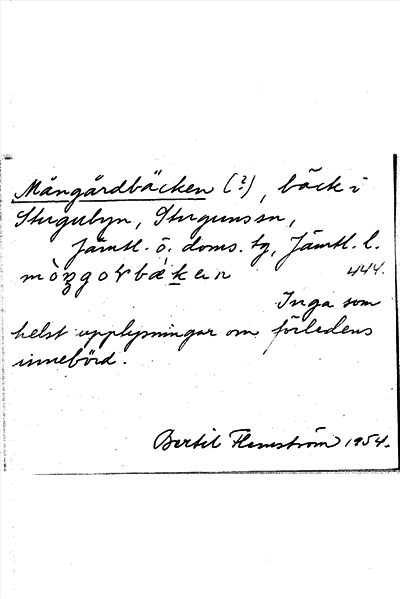 Mångårdbäcken (?), bäck i
Stugubyn, Stuguns sn,
Jämtl. ö. doms. tg, Jämtl. l.
444.
Inga som
helst upplysningar om förledens
innebörd.
Bertil Flemström 1954.